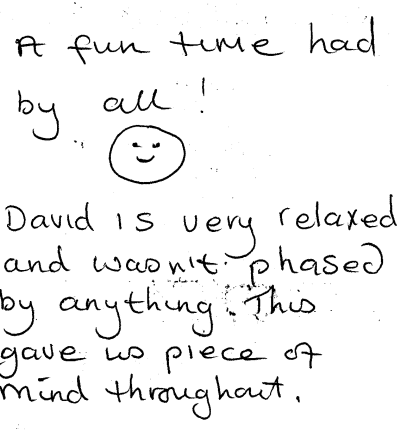 A fun time had
by all!
David is very relaxed
and wasn't phased
by anything. This
gave us piece of
mind throughout.